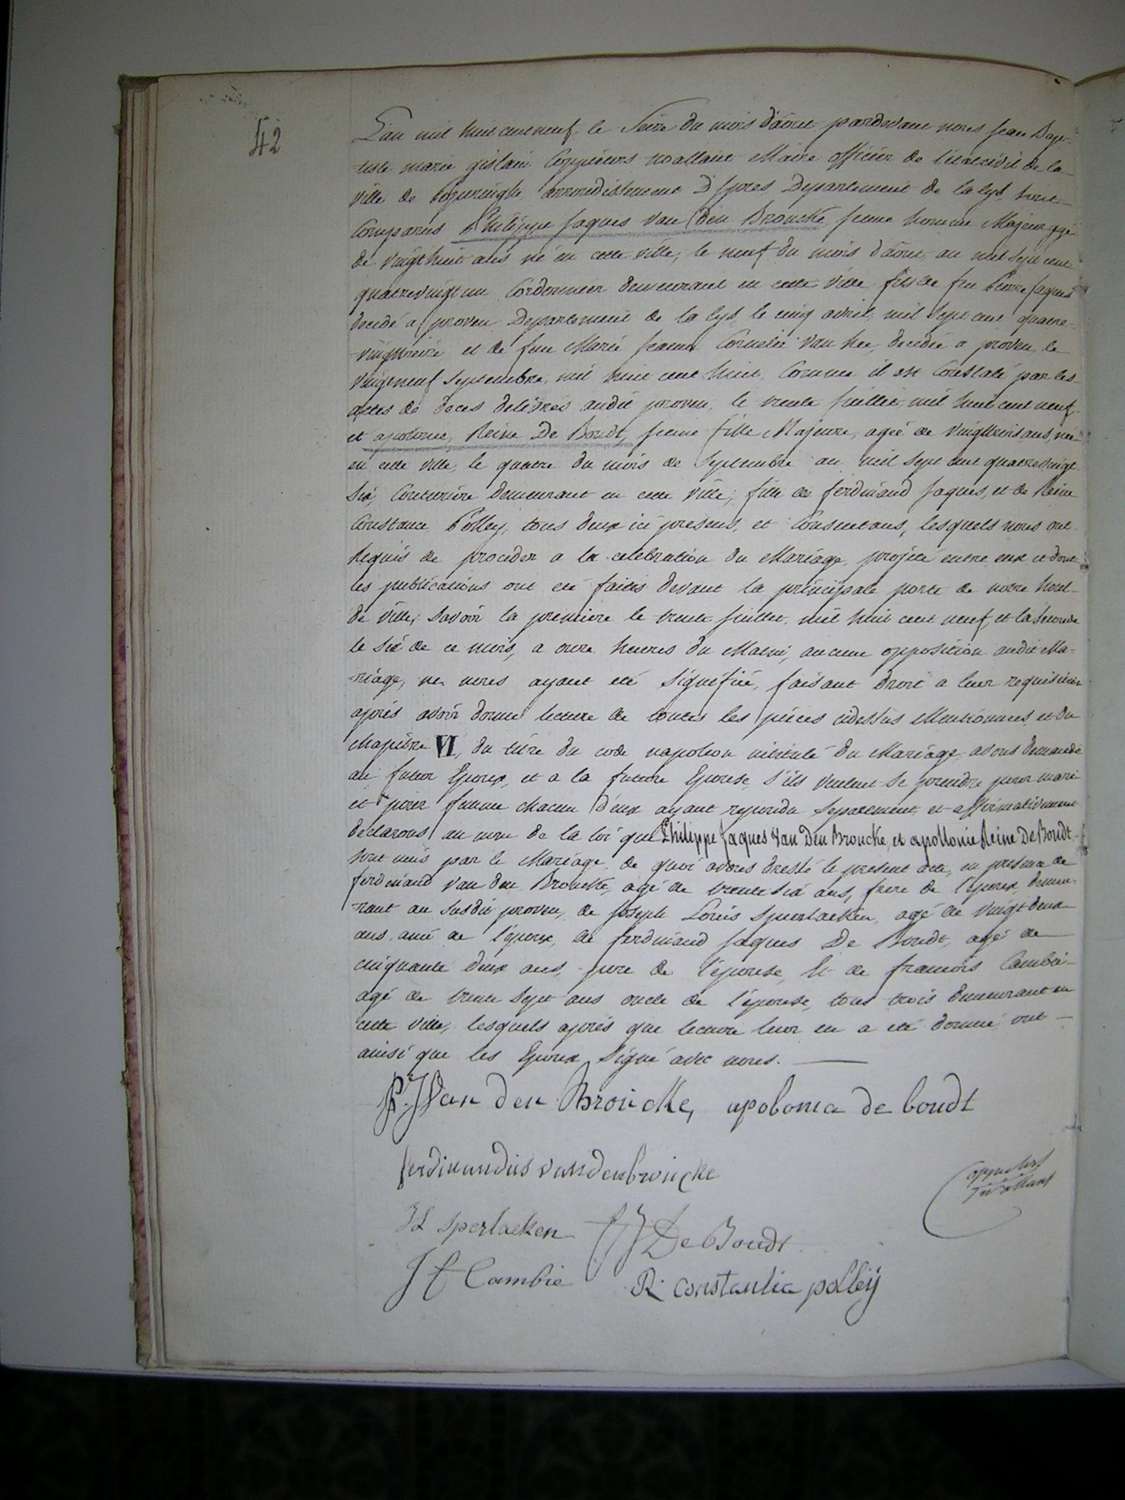 42
L'an mil huit cent neuf le Seize du mois d'aôut pardevant nous Jean Bap-
tiste marie gislain Coppieters wallant Maire officier de l'état civil de la
ville de poperinghe arrondissement d'ypres Departement de la lys sont
Comparus Philippe Jaques Van den Broucke jeune homme Majeur agé
de vingt huit ans né en cette ville, le neuf du mois d'aôut an mil sept cent
quatrevingt un Cordonnier demeurant en cette ville fils de feu Pierre Jaques
decedé a proven Departement de la lys le cinq avril mil sept cent quatre-
-vingt et de feue Marie Jeanne Cornelie van hee, decedée a proven le
vingneuf Septembre mil huit cent huit, Comme il est Constaté par les
actes de deces delivrés audit proven le trente juillet mil huit cent neuf
et apolonie Reine De Boudt, jeune fille Majeure, agée de vingttrois ans, née
en cette ville le quatre du mois de Septembre an mil sept cent quatrevingt
Six Couturière demeurant en cette ville, fille de ferdinand Jaques, et de Reine
Constance Polley, tous deux ici présens, et Consentans, lesquels nous ont
Requis de proceder a la celebration du Mariage projeté entre eux et dont
les publications ont été faites devant la principale porte de notre hotel
de ville, Savoir la premiere le trente juillet, mil huit cent neuf, et la Seconde
le Six de ce mois, a onze heures du Matin, aucune opposition audit Ma-
riage, ne nous ayant été Signifiée, faisant droit a leur requisition
après avoir donné lecture de toutes les pièces cidessus Mentionnées et du
chapitre VI, du titre du code napoleon intitulé du Mariage, avons demandé
au futur Epoux, et a la future Epouse, s'ils veulent se prendre pour mari
et pour femme chacun d'eux ayant repondu Séparement et affirmativement
declarons au nom de la loi que Philippe Jaques Van Den Broucke, et apollonie Reine De Boudt
sont unis par le Mariage, de quoi avons dressé le present acte, en presence de
ferdinand Van den Broucke, agé de trente six ans, frere de l'epoux, demeu-
-rant au susdit proven, de joseph Louis Sperlaeken, agé de vingt deux
ans ami de l'epoux, de ferdinand Jaques De Boudt, agé de
cinquante deux ans, pere de l'epouse, Et de francois Cambié
agé de trente Sept ans oncle de l'épouse, tous trois demeurant en
cette ville, lesquels après que lecture leur en a été donné ont
ainsi que les Epoux Signé avec nous.
P: J Van den Broucke, apolonia de boudt
ferdinandus vandenbroucke
J L Sperlaeken F J De Boudt
J f Cambie R. constantia polleÿ